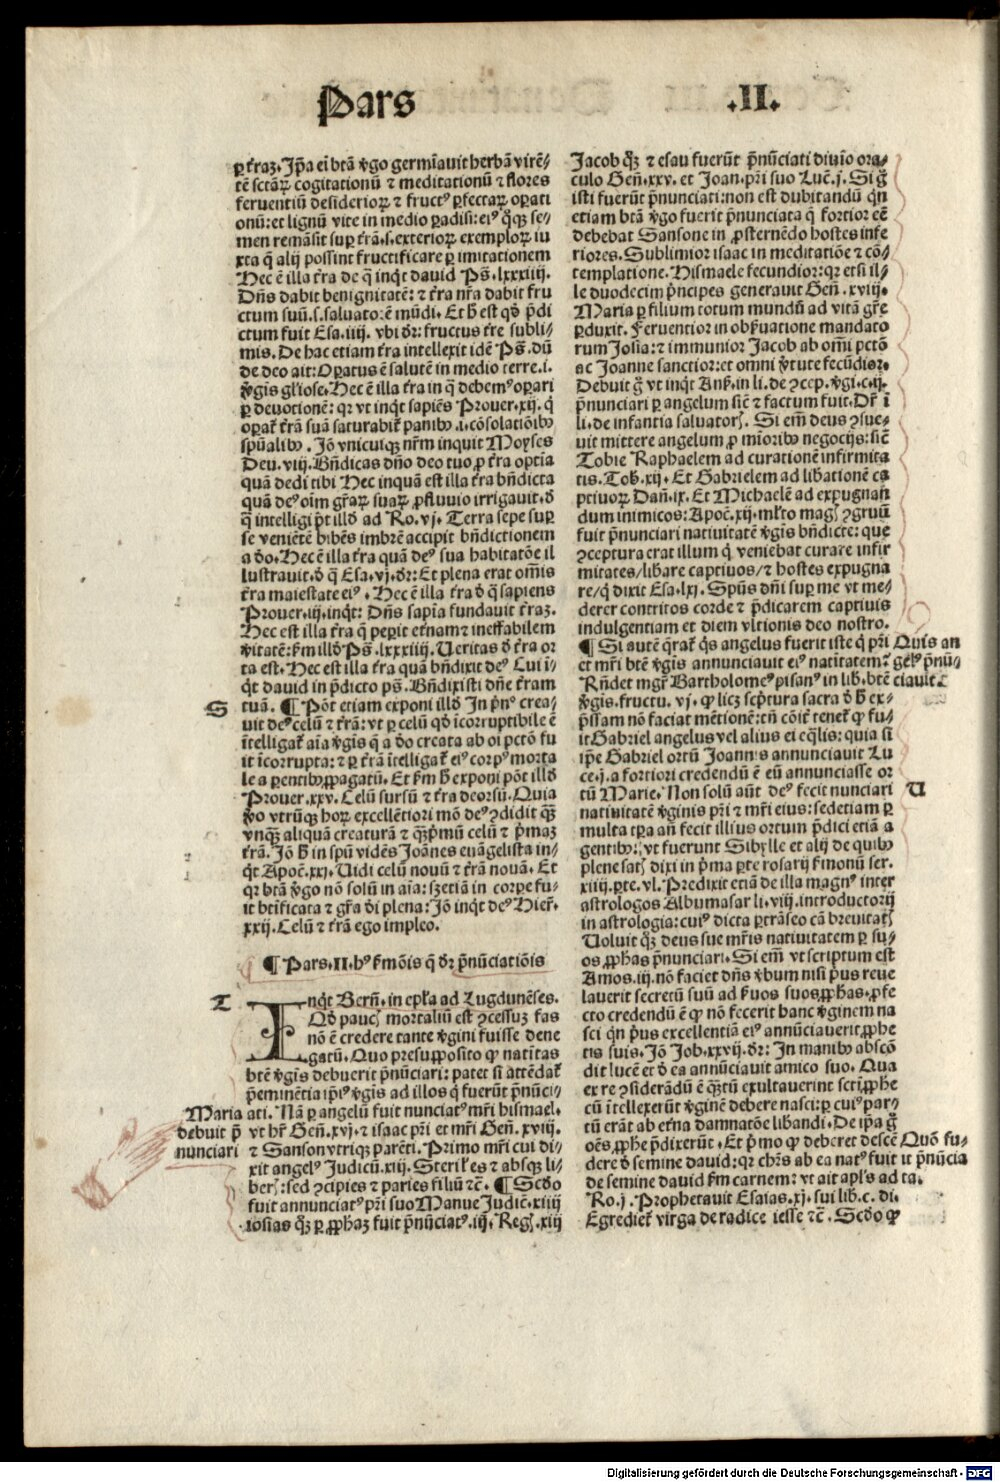 Pars .II.
ꝑ t̄raꝫ. Ip̄a ei btā v̓go germīauit herbā virē-
tē sctāꝝ cogitationū ⁊ meditationū ⁊ flores
feruentiū desiderioꝝ ⁊ fructꝰ ꝑfectaꝝ oꝑati
onū: et lignū vite in medio ꝑadisi: eiꝰ q̈ꝫ se-
men remāsit suꝑ t̄rā.s. exterioꝝ exemploꝝ iu
xta q̄ alij possint fructificare ꝑ imitationem
Hec ē illa t̄ra de q̄ inq̇t dauid Ps̄. lxxxiiij.
Dn̄s dabit benignitatē: ⁊ t̄ra nr̄a dabit fru
ctum suū.s. saluatorē mūdi. Et h̄ est qd̓ p̄di
ctum fuit Esa. iiij. vbi dr̄: fructus t̄re subli-
mis. De hac etiam t̄ra intellexit idē Ps̄. dū
de deo ait: Oꝑatus ē salutē in medio terre. i.
v̓gis gl̓iose. Hec ē illa t̄ra in q̄ debemꝰ oꝑari
ꝑ deuotionē: qr vt inq̇t sapiēs Prouer. xij. q̇
oꝑat̄ t̄rā suā saturabit̄ panibꝰ .i. cōsolatiōibꝰ
spūalibꝰ. Iō vnicuiqꝫ nr̄m inquit Moyses
Deu. viij. Bn̄dicas dn̄o deo tuo ꝓ t̄ra optīa
quā dedi tibi Hec inquā est illa t̄ra bn̄dicta
quā deꝰ oīm gr̄aꝝ suaꝝ ꝓfluuio irrigauit. d̓
q̄ intelligi p̄t illd̓ ad Ro. vj. Terra sepe suꝑ
se veniētē bibēs imbrē accipit bn̄dictionem
a d̓o. Hec ē illa t̄ra quā deꝰ sua habitatōe il
lustrauit. d̓ q̄ Esa. vj. dr̄: Et plena erat om̄is
t̄ra maiestate eiꝰ. Hec ē illa t̄ra d̓ q̄ sapiens
Prouer. iij. inq̇t: Dn̄s sapīa fundauit t̄raꝫ.
Hec est illa t̄ra q̄ peꝑit et̄nam ⁊ ineffabilem
v̓itatē: ẜm illd̓ Ps̄. lxxxiiij. Ueritas d̓ t̄ra or
ta est. Hec est illa t̄ra quā bn̄dixit deꝰ Cui ī-
q̇t dauid in p̄dicto ps̄. Bn̄dixisti dn̄e t̄ram
S
tuā. ¶ Pōt etiam exponi illd̓ In p̄nᵒ crea-
uit deꝰ celū ⁊ t̄rā: vt ꝑ celū qd̓ īcorruptibile ē
ītelligat̄ aīa v̓gis q̄ a d̓o creata ab oī pctō fu
it īcorrupta: ⁊ ꝑ t̄rā ītelligat̄ eiꝰ corpꝰ morta
le a parentibꝰ ꝓpagatū. Et ẜm h̄ exponi pōt illd̓
Prouer. xxv. Celū sursū ⁊ t̄ra deorsū. Quia
v̓o vtrūqꝫ hoꝝ excellētiori mō deꝰ ↄdidit qꝫ
vnqꝫ aliquā creaturā ⁊ qꝫp̄mū celū ⁊ p̄maꝫ
t̄rā. Iō h̄ in spū vidēs Joānes euāgelista in-
q̇t Apoē. xxj. Uidi celū nouū ⁊ t̄rā nouā. Et
qr btā v̓go nō solū in aīa: sꝫ etiā in corꝑe fu-
it btīficata ⁊ gr̄a d̓i plena: Iō inq̇t deꝰ Hier̄.
xxij. Celū ⁊ t̄rā ego impleo.
¶ Pars. II. hꝰ ẜmōis q̄ dr̄ p̄nūciatiōis
T
Inq̇t Bern̄. in ep̄la ad Lugdunēses.
Qd̓ paucꝭ mortaliū est ↄcessuꝫ fas
nō ē credere tante v̓gini fuisse dene
gatū. Quo presuꝓposito ꝙ natīitas
btē v̓gīs debuerit p̄nūciari: patet si attēdat̄
p̄eminētia ip̄iꝰ v̓gis ad illos q̇ fuerūt p̄nūci-
Maria
debuit p̄
nunciari
ati. Nā ꝑ angelū fuit nunciatꝰ mr̄i hismael.
vt hr̄ Gen̄. xvj. ⁊ isaac pr̄i et mr̄i Gen̄. xviij.
⁊ Sanson vtriqꝫ parēti. Primo mr̄i cui di-
xit angelꝰ Judicū. xiij. Steril̓ es ⁊ absqꝫ li-
berꝭ: sed ↄcipies ⁊ paries filiū ⁊c̄. ¶ Scd̓o
fuit annunciatꝰ pr̄i suo Manue Judic̄. xiiij
iosias q̈ꝫ ꝑ ꝓphaꝫ fuit p̄nūciatꝰ. iij. Regꝭ. xiij
Jacob q̈ꝫ ⁊ esau fuerūt p̄nūciati diuīo ora-
culo Gen̄. xxv. et Joan. pr̄i suo Luc̄. j. Si g̊
isti fuerūt p̄nunciati: non est dubitandū qn̄
etiam btā v̓go fuerit p̄nunciata q̄ fortior eē
debebat Sansone in ꝓsternēdo hostes infe
riores. Sublimior isaac in meditatiōe ⁊ cō-
templatione. Hismaele fecundior: qr etsi il-
le duodecim p̄ncipes generauit Gen̄. xviij.
Maria ꝑ filium totum mundū ad vitā gr̄e
ꝑduxit. Feruentior in obẜuatione mandato
rum Josia: ⁊ immunior Jacob ab om̄i pctō
ac Joanne sanctior: et omni v̓tute fecūdior.
Debuit g̊ vt inq̇t Ans̄. in li. de ↄcep. v̓gi. c. ij.
p̄nunciari ꝑ angelum sic̄ ⁊ factum fuit. Dr̄ ī
li. de infantia saluatorꝭ. Si em̄ deus ↄsue-
uit mittere angelum ꝓ mīoribꝰ negocijs: sic̄
Tobie Raphaelem ad curationē infirmita
tis. Tob. xij. Et Gabrielem ad lib̓ationē ca
ptiuoꝝ Dan̄. ix. Et Michaelē ad expugnan̄
dum inimicos: Apoē. xij. ml̓to magꝭ ↄgruū
fuit p̄nunciari natiuitatē v̓gīs bn̄dicte: que
ↄceptura erat illum q̇ veniebat curare infir
mitates/ lib̓are captiuos/ ⁊ hostes expugna
re/ q̇ dixit Esa. lxj. Spūs dn̄i suꝑ me vt me-
derer contritos corde ⁊ p̄dicarem captiuis
indulgentiam et diem vltionis deo nostro.
Quis an
gelꝰ p̄nū-
ciauit
¶ Si autē q̄rat̄ q̇s angelus fuerit iste q̇ pr̄i
et mr̄i btē v̓gis annunciauit eiꝰ natītatem?
Rn̄det mgr̄ Bartholomeꝰ pisanꝰ in lib. btē
v̓gis. fructu. vj. ꝙ licꝫ scp̄tura sacra d̓ h̄ ex-
p̄ssam nō faciat mētionē: tn̄ cōit̄ tenet̄ ꝙ fu-
it Gabriel angelus vel alius ei eq̄lis: quia si
ip̄e Gabriel ortū Joannis annunciauit Lu
ce. j. a fortiori credendū ē eū annunciasse or
U
tū Marie. Non solū aūt deꝰ fecit nunciari
natiuitatē v̓ginis pr̄i ⁊ mr̄i eius: sed etiam ꝑ
multa tꝑa an̄ fecit illius ortum p̄dici etiā a
gentibꝰ: vt fuerunt Sibylle et alij de quibꝰ
plene satꝭ dixi in p̄ma ꝑte rosarij ẜmonū ser.
xiiij. ꝑte. vl. Predixit etiā de illa magnꝰ inter
astrologos Albumasar li. viij. introductorij
in astrologia: cuiꝰ dicta ꝑtrāseo cā breuitatꝭ
Uoluit q̈ꝫ deus sue mr̄is natiuitatem ꝑ su-
os ꝓphas p̄nunciari. Si em̄ vt scriptum est
Amos. iij. nō faciet dn̄s v̓bum nisi p̄us reue
lauerit secretū suū ad ẜuos suos ꝓphas. ꝓfe
cto credendū ē ꝙ nō fecerit hanc v̓ginem na
sci qn̄ p̄us excellentiā eiꝰ annūciauerit ꝓphe
tis suis. Iō Job. xxvij. dr̄: In manibꝰ abscō
dit lucē et d̓ ea annūciauit amico suo. Qua
ex re ↄsiderādū ē qꝫtū exultauerint scti ꝓphe
cū ītellexerūt v̓ginē debere nasci: ꝑ cuiꝰ par-
tū erāt ab et̄na damnatōe lib̓andi. De ip̄a g̊
Quō fu-
it p̄nūcia
ta.
oēs ꝓphe p̄dixerūt. Et p̄mo ꝙ deberet descē
dere d̓ semine dauid: qr chr̄s ab ea natꝰ fuit
de semine dauid ẜm carnem: vt ait apl̓s ad
Ro. j. Prophetauit Esaias. xj. sui lib. c. di.
Egrediet̄ virga de radice iesse ⁊c̄. Scd̓o ꝙ
Digitalisierung gefördert durch die Deutsche Forschungsgemeinschaft - DFG